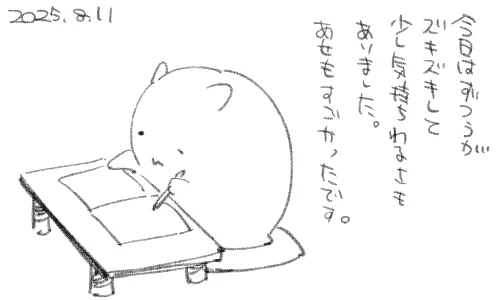 2025.8.11
今日はずつうが
ズキズキして
少し気持ちわるさも
ありました。
あせもすごかったです。